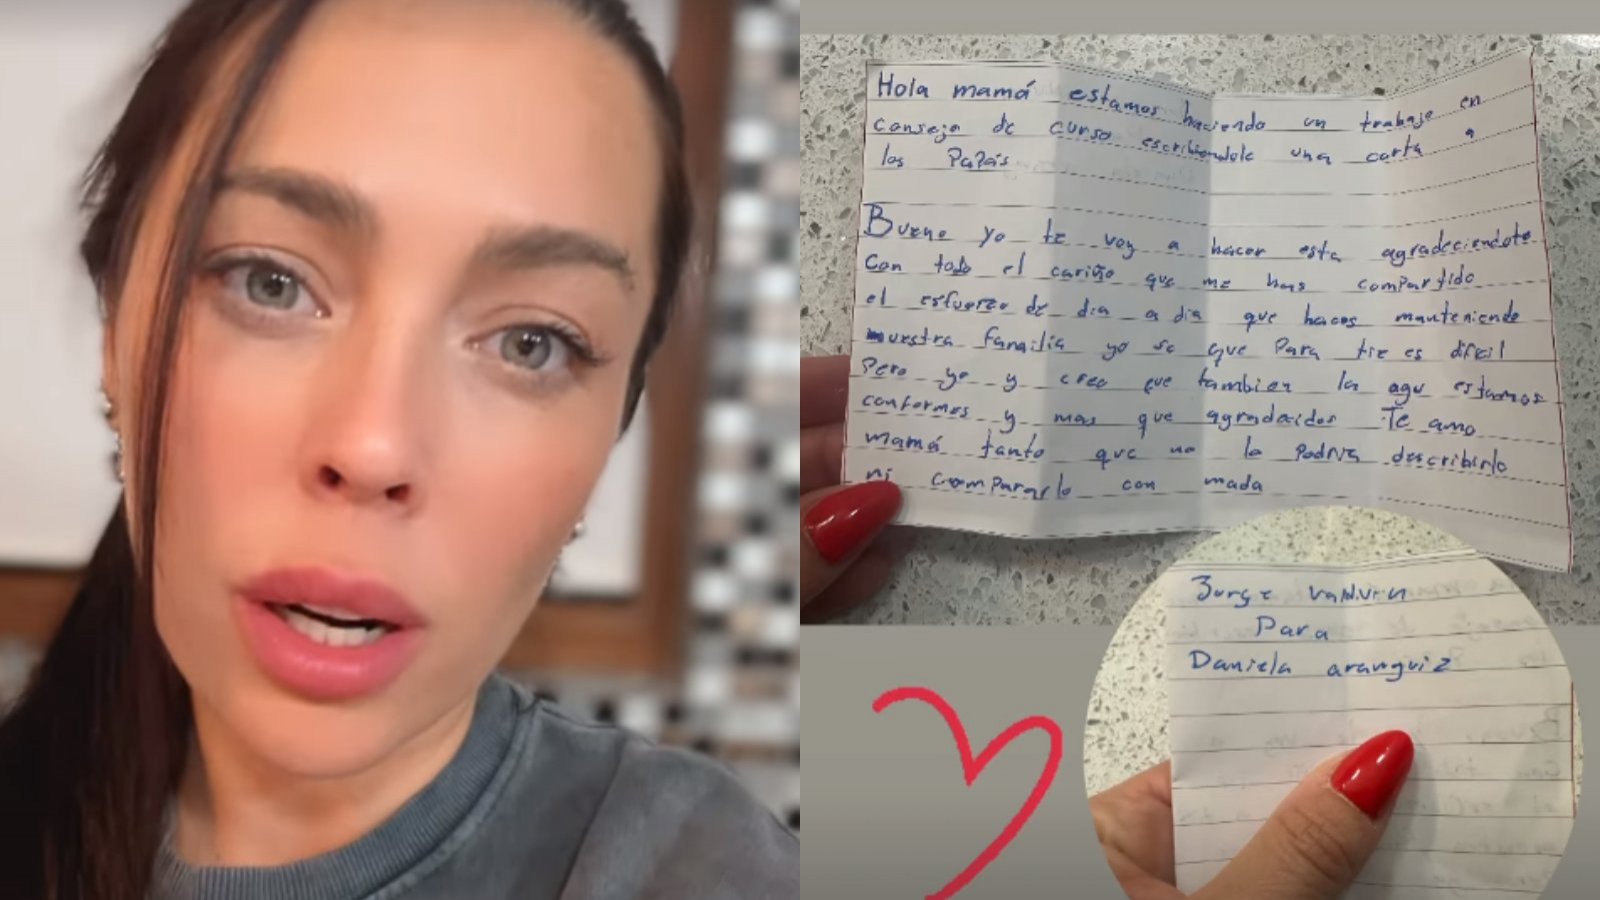 Hola mamá estamos haciendo un trabajo en
consejo de curso escribiendole una carta a
los Papás
Bueno yo te voy a hacer esta agradeciendote
con todo el cariño que me has compartido
el esfuerzo de dia a dia que haces manteniendo
nuestra familia yo se que Para tie es dificil
Pero yo y creo que tambien la agu estamos
conformes y mas que agradecidos Te amo
mamá tanto que no lo Podria describirlo
ni compararlo con nada
Jorge valdivia
Para
Daniela aranguiz